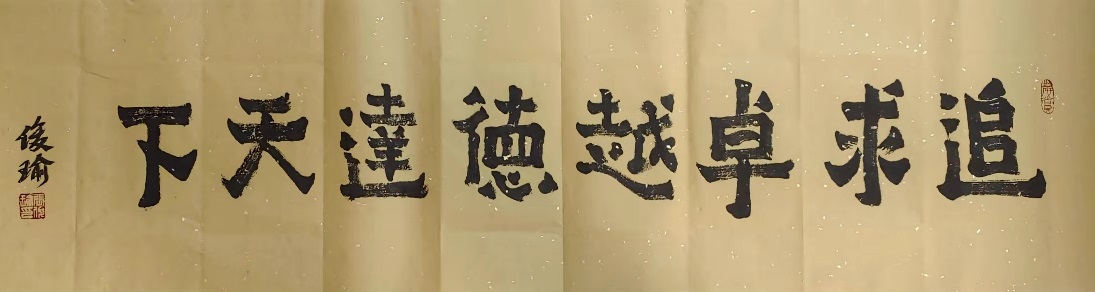 追求卓越德達天下
俊瑜